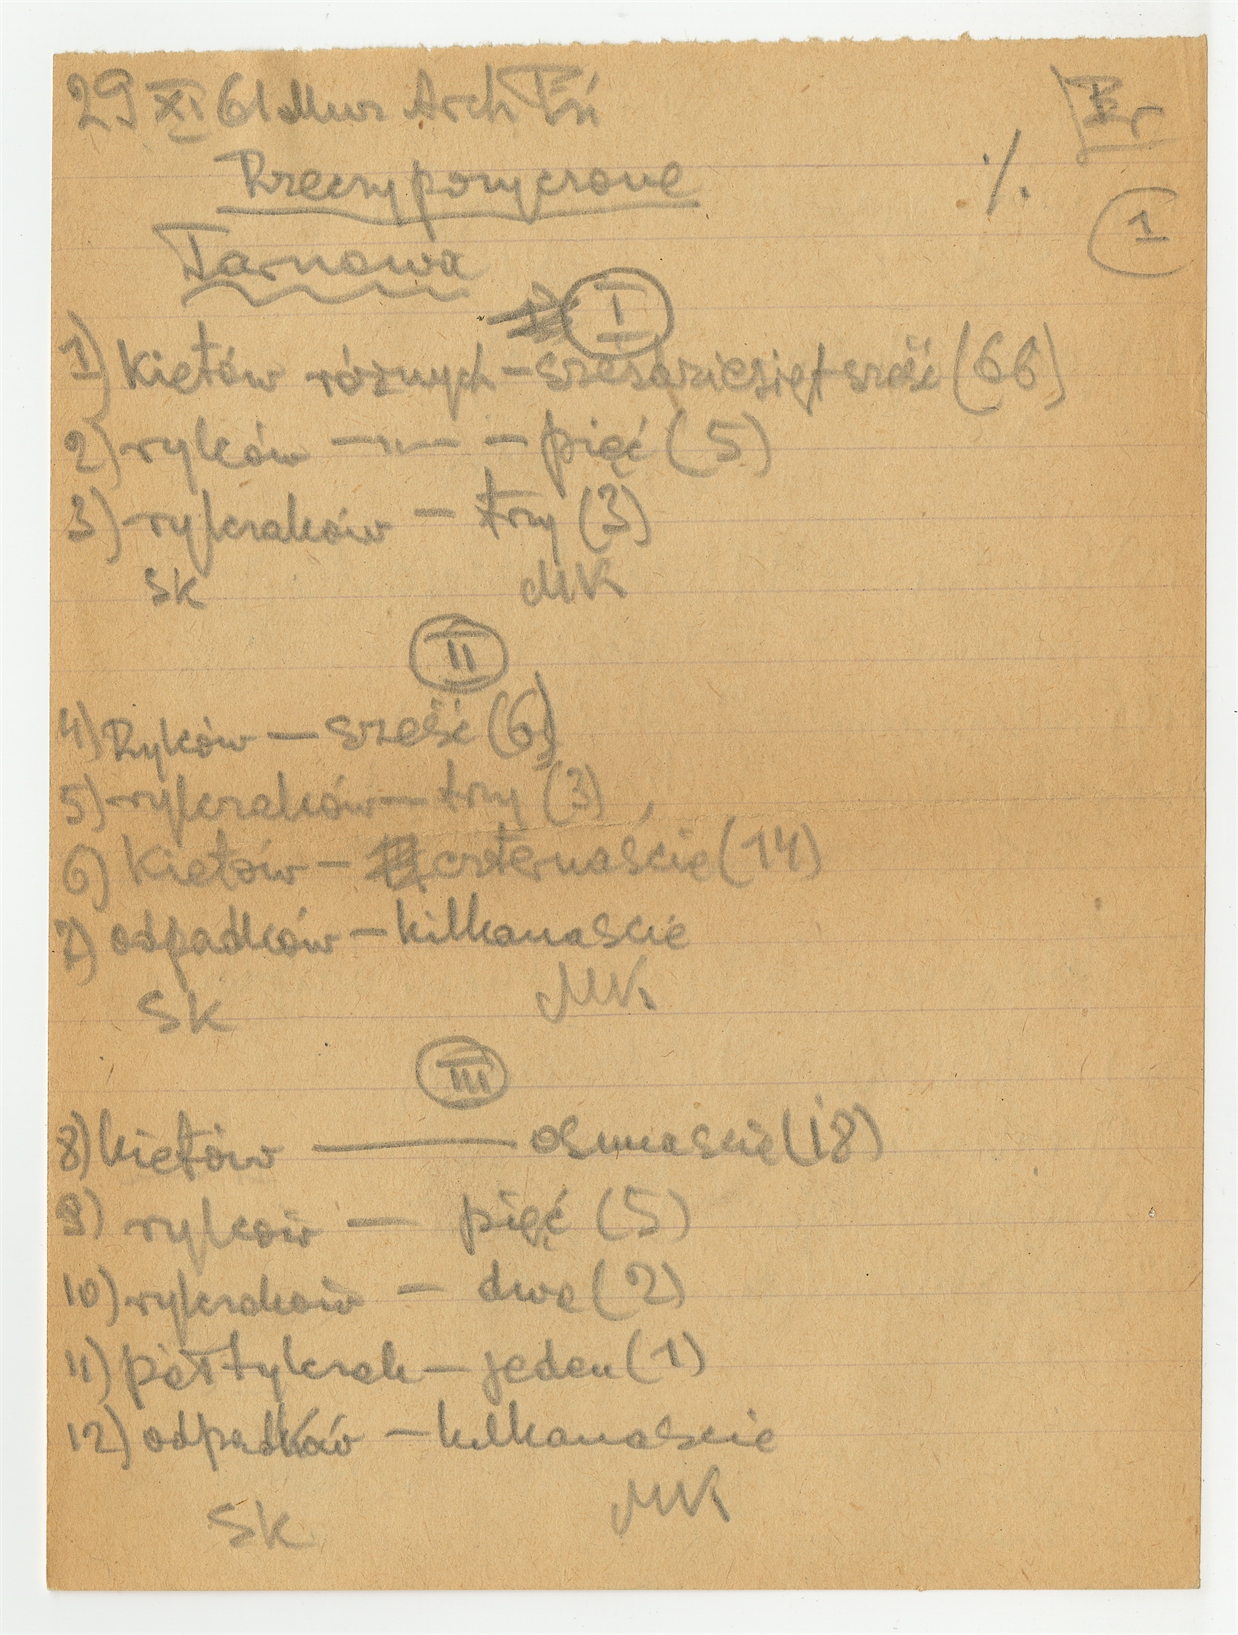 29 XI 61 Muz Arch
Er
Rzeczy pożyczone
./.
1
Tarnowa
I
1) Kiełów różnych – sześdziesięt sześć (66)
2) ryłców —"— – pięć (5)
3) rylczaków – trzy (3)
SK MK
II
4) Ryłców — sześć (6)
5) rylczaków — trzy (3)
6) Kiełów – czternaście (14)
7) odpadków – kilkanaście
SK MK.
III
8) kiełów — osmnaście (18)
9) ryłców — pięć (5)
10) rylczaków – dwa (2)
11) – jeden (1)
12) odpadków – kilkanaście
SK MK